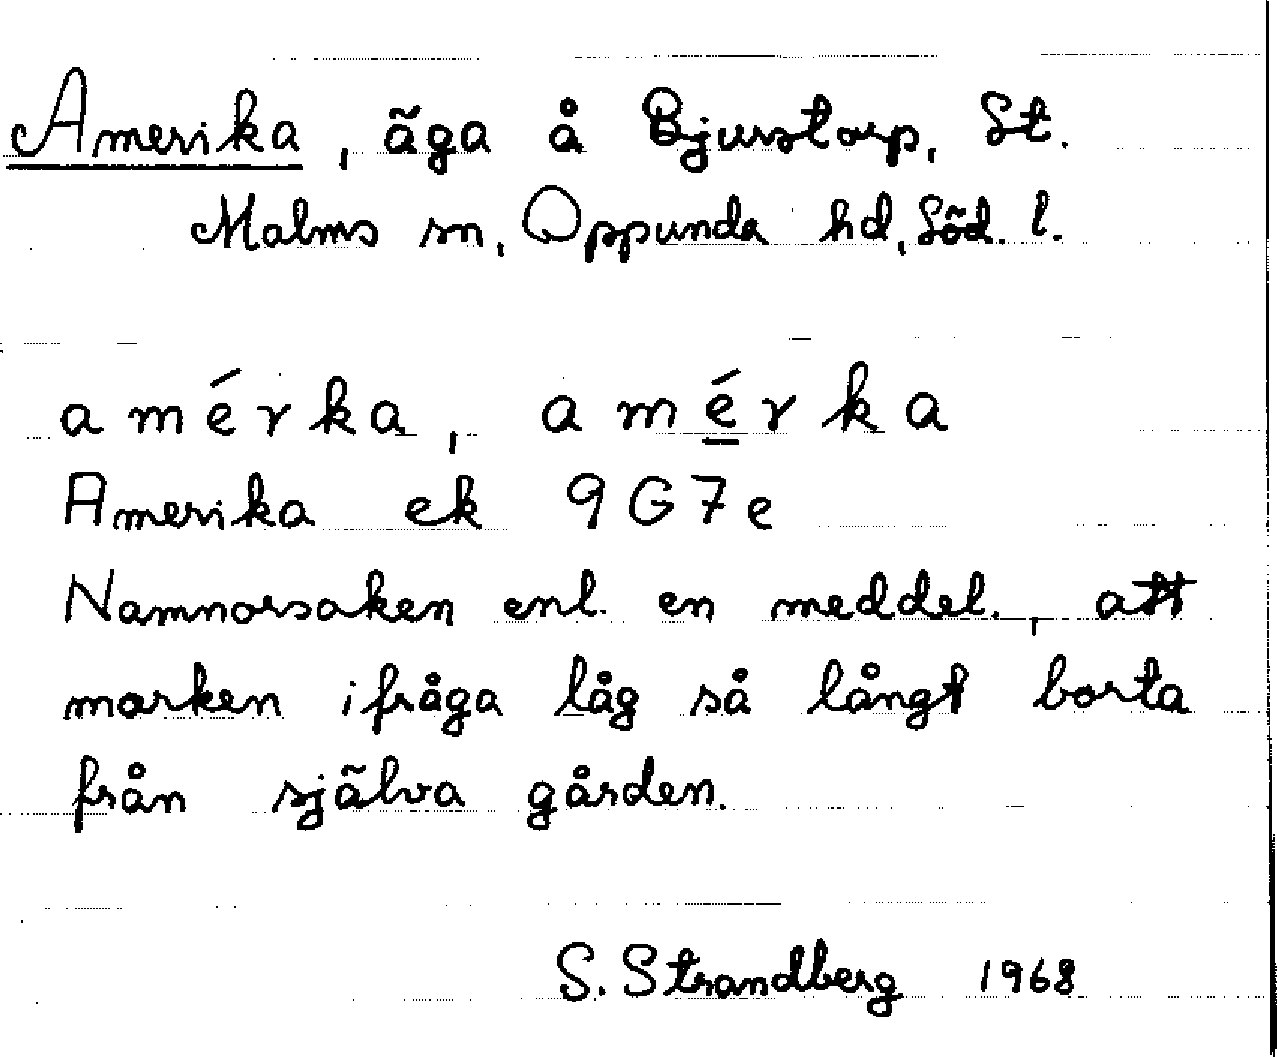 Amerika, äga å Bjurstorp, St.
Malms sn, Oppunda hd, Söd. l.
amérka, amérka
Amerika ek 9G7e
Namnorsaken enl. en meddel., att
marken ifråga låg så långt borta
från själva gården.
S. Strandberg 1968